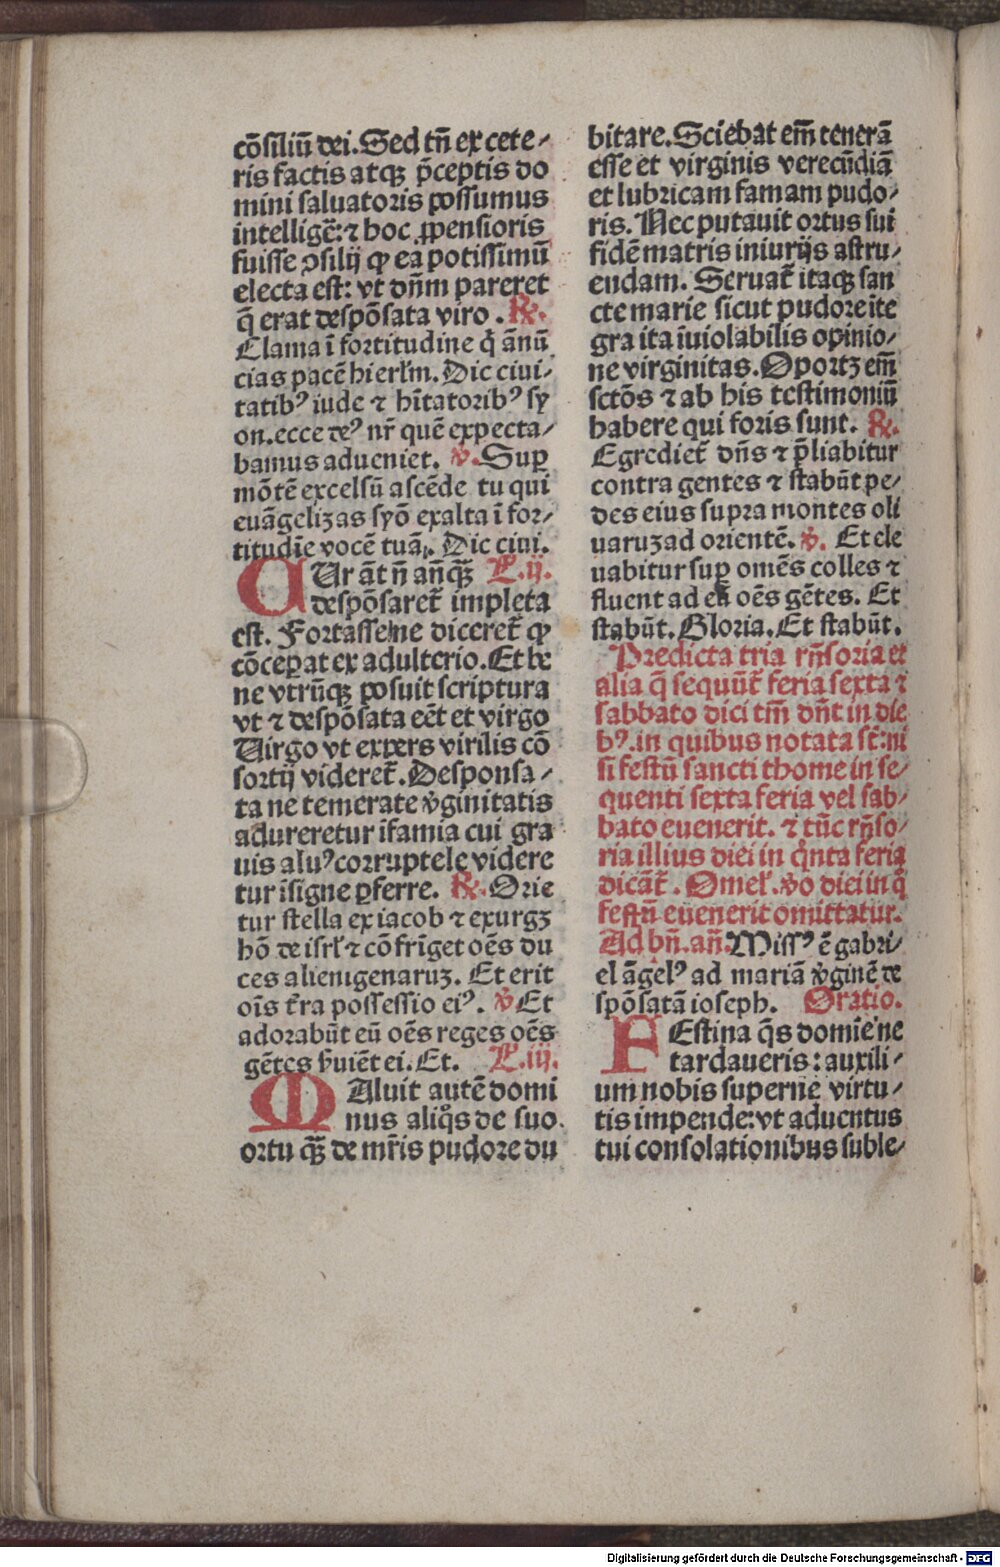 cōsiliū dei. Sed tñ ex cete⸗
ris factis atqꝫ p̄ceptis do
mini saluatoris possumus
intelligē: ⁊ hoc ꝓpensioris
fuisse ꝯsilij ꝙ ea potissimū
electa est: vt dñm pareret
q̄ erat despōsata viro. ℟.
Clama ī fortitudine q̇ ānū
cias pacē hierl̄m. Dic ciui⸗
tatibꝰ iude ⁊ hītatoribꝰ sy
on. ecce deꝰ nr̄ quē expecta⸗
bamus adueniet. ℣. Suꝑ
mōtē excelsū ascēde tu qui
euāgelizas syō exalta ī for⸗
titudīe vocē tuā. Dic ciui.
CUr āt ñ anq̄ꝫ L.ij.
despōsaret̄ impleta
est. Fortassene diceret̄ ꝙ
cōceꝑat ex adulterio. Et be
ne vtrūqꝫ posuit scriptura
vt ⁊ despōsata eēt et virgo
Uirgo vt expers virilis cō
sortij videret̄. Desponsa⸗
ta ne temerate v̇ginitatis
adureretur īfamia cui gra
uis aluꝰ corruptele videre
tur īsigne ꝓferre. ℟. Orie
tur stella ex iacob ⁊ exurgꝫ
hō de isrl̄ ⁊ cōfrīget oēs du
ces alienigenaruꝫ. Et erit
oīs t̄ra possessio eiꝰ. ℣ Et
adorabūt eū oēs reges oēs
gētes ẜuiēt ei. Et. L.iij.
MAluit autē domi
nus aliq̇s de suo
ortu q̄ꝫ de mr̄is pudore du
bitare. Sciebat em̄ tenerā
esse et virginis verecūdiā
et lubricam famam pudo⸗
ris. Nec putauit ortus sui
fidē matris iniurijs astru⸗
endam. Seruat̄ itaqꝫ san
cte marie sicut pudore īte
gra ita īuiolabilis opinio⸗
ne virginitas. Oportꝫ em̄
sctōs ⁊ ab his testimoniū
habere qui foris sunt. ℟.
Egrediet̄ dñs ⁊ p̄liabitur
contra gentes ⁊ stabūt pe⸗
des eius supra montes oli
uaruꝫ ad orientē. ℣. Et ele
uabitur suꝑ omēs colles ⁊
fluent ad eū oēs gētes. Et
stabūt. Gloria. Et stabūt.
Predicta tria rñsoria et
alia q̄ sequūt̄ feria sexta ⁊
sabbato dici tm̄ dñt in die
bꝰ. in quibus notata st̄: ni
si festū sancti thome in se⸗
quenti sexta feria vel sab⸗
bato euenerit. ⁊ tūc rñso⸗
ria illius diei in q̇nta feria
dicāt̄. Omel̄. v̇o diei in q̇
festū euenerit omittatur.
Ad bñ. añ. Missꝰ ē gabri⸗
el āgelꝰ ad mariā v̇ginē de
spōsatā ioseph. Oratio.
FEstina q̄s domīe ne
tardaueris: auxili⸗
um nobis superne virtu⸗
tis impende: vt aduentus
tui consolationibus suble⸗
Digitalisierung gefördert durch die Deutsche Forschungsgemeinschaft - DFG